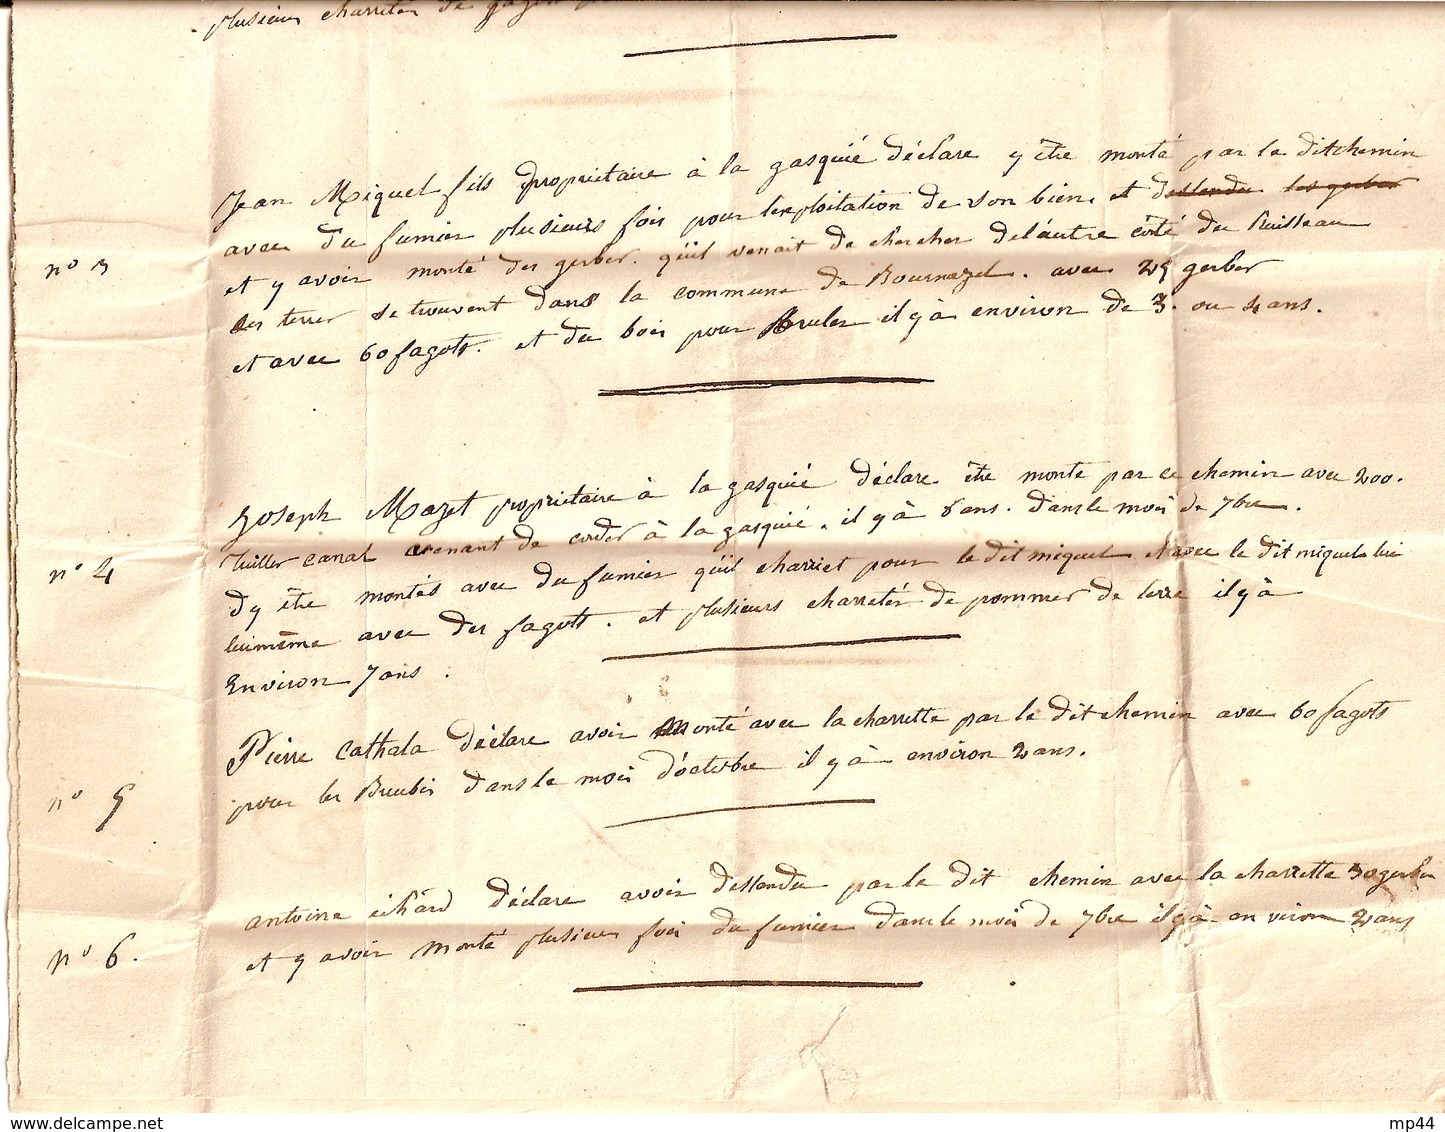 plusieurs charretes de gazon
Jean Miquel fils propriettaire à la gasquié déclare y être monté par le dit chemin
avec du fumier plusieurs fois pour lexploitation de son bien. et dessendu les gerber
n° 3
et y avoir monté des gerber. qu'il venait de chercher del'autre côté du Ruisseau
ses terrer se trouvent dans la commune de Bournazel. avec 25 gerber
et avec 60 fagots. et du bois pour Bruler il y à environ de 3. ou 4 ans.
Joseph Mazet propriettaire à la gasquié déclare être monté par ce chemin avec 200.
tuiller canal venant de corder à la gasquié. il y à 6 ans. dans le mois de 7bre.
n° 4
d'y être montés avec du fumier qu'il charriet pour le dit miquel et avec le dit miquel lui
luimême avec des fagots. et plusieurs charretés de pommes de terre il y à
Environ 7 ans.
Pierre Cathala déclare avoir monté avec la charrette par le dit chemin avec 60 fagots
n° 5
pour les dans le mois d'octobre il y à environ 2 ans.
antoine échard déclare avoir dessendu par le dit chemin avec la charrette 30 gerber
n° 6.
et y avoir monté plusieurs fois du fumier dans le mois de 7bre il y à environ 2 ans
www.delcampe.net
mp44